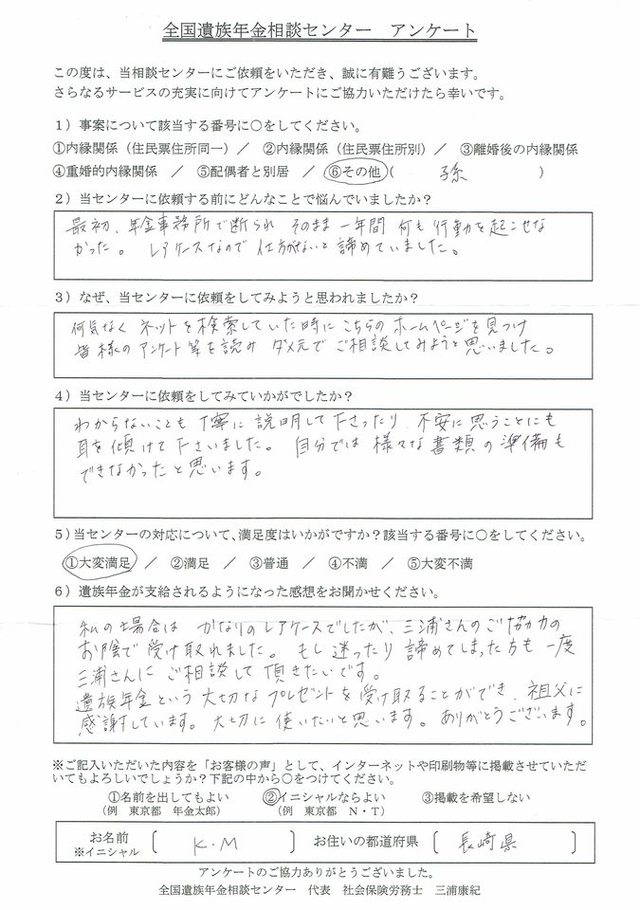 全国遺族年金相談センター　アンケート
この度は、当相談センターにご依頼をいただき、誠に有難うございます。
さらなるサービスの充実に向けてアンケートにご協力いただけたら幸いです。
1）事案について該当する番号に○をしてください。
①内縁関係（住民票住所同一）／　②内縁関係（住民票住所別）／　③離婚後の内縁関係
④重婚的内縁関係　／　⑤配偶者と別居　／　⑥その他（　孫　）
2）当センターに依頼する前にどんなことで悩んでいましたか？
最初、年金事務所で断られ　そのまま　一年間　何も行動を起こせな
かった。　レアケースなので　仕方がないと　諦めていました。
3）なぜ、当センターに依頼をしてみようと思われましたか？
何気なく　ネットを検索していた時に　こちらの　ホームページを見つけ
皆様のアンケート等を読み　ダメ元で　ご相談してみようと思いました。
4）当センターに依頼をしてみていかがでしたか？
わからないことも　丁寧に　説明して下さったり　不安に思うことにも
耳を傾けて下さいました。　自分では　様々な書類の準備も
できなかったと思います。
5）当センターの対応について、満足度はいかがですか？該当する番号に○をしてください。
①大変満足　／　②満足　／　③普通　／　④不満　／　⑤大変不満
6）遺族年金が支給されるようになった感想をお聞かせください。
私の場合は　かなりのレアケースでしたが、三浦さんのご協力の
お陰で受け取れました。　もし迷ったり　諦めてしまった方も　一度
三浦さんに　ご相談して頂きたいです。
遺族年金という　大切な　プレゼントを受け取ることができ、祖父に
感謝しています。　大切に使いたいと思います。　ありがとうございます。
※ご記入いただいた内容を「お客様の声」として、インターネットや印刷物等に掲載させていただ
いてもよろしいでしょうか？下記の中から○をつけてください。
①名前を出してもよい　②イニシャルならよい　③掲載を希望しない
（例　東京都　年金太郎）　（例　東京都　N・T）
お名前
※イニシャル　〔　K.M　〕　お住いの都道府県　〔　長崎県　〕
アンケートのご協力ありがとうございました。
全国遺族年金相談センター　代表　社会保険労務士　三浦康紀